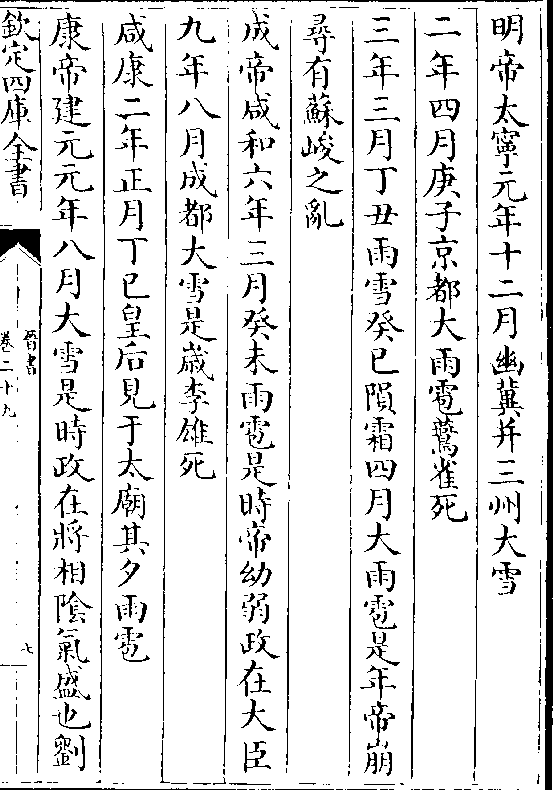 明帝太寧元年十二月幽冀并三州大雪
二年四月庚子京都大雨雹鷰雀死
三年三月丁丑雨雪癸巳隕霜四月大雨雹是年帝崩
尋有蘇峻之亂
成帝咸和六年三月癸未雨雹是時帝幼弱政在大臣
九年八月成都大雪是歲李雄死
咸康二年正月丁巳皇后見于太廟其夕雨雹
康帝建元元年八月大雪是時政在將相陰氣盛也劉
欽定四庫全書
晉書
卷二十九
七